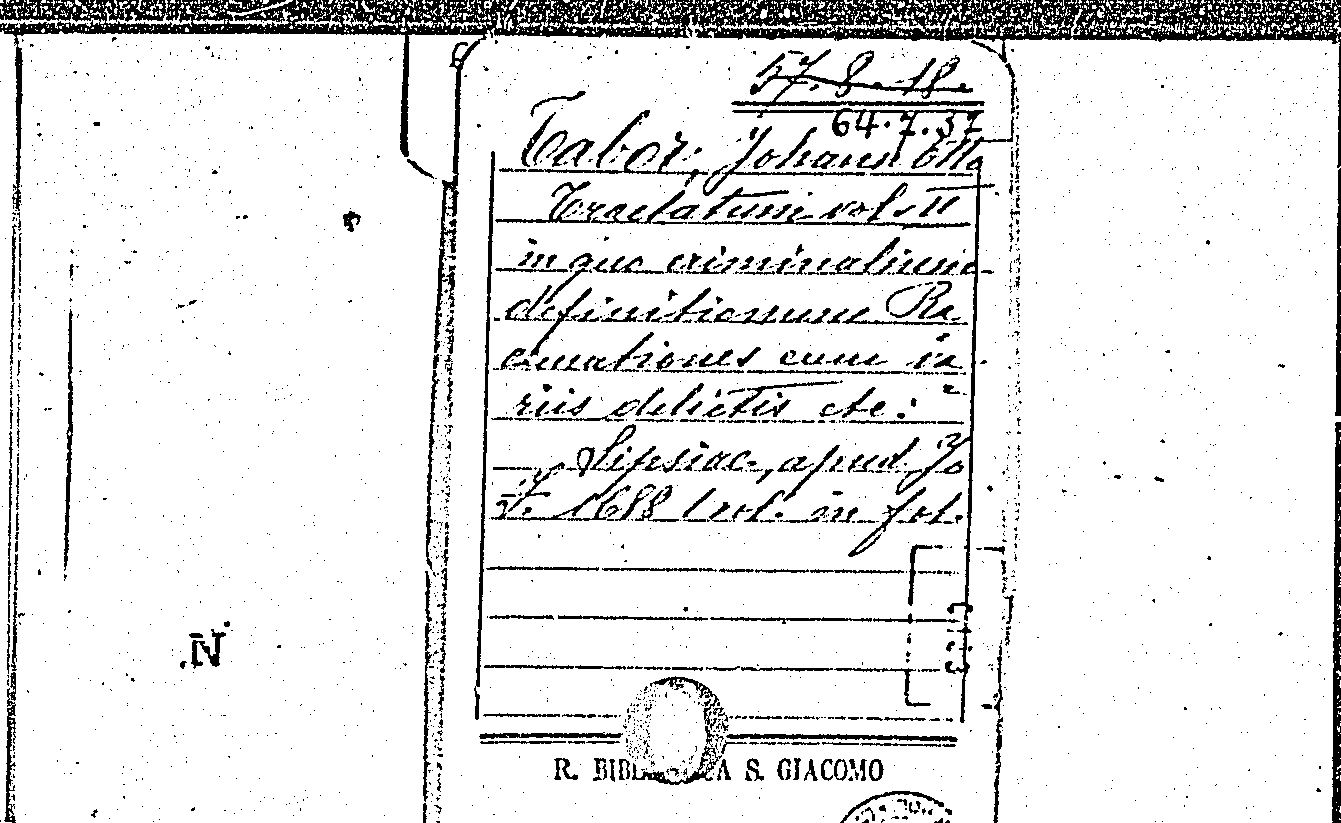 57.8.18.
64.7.37
Tabor, Johann Otto
Tractatum vol. II
in quo criminalium
definitionum Re
cum
riis delictis etc:
Lipsiae, apud Jo
F. 1688 1 vol. in fol.
N
R. BIBL CA S. GIACOMO